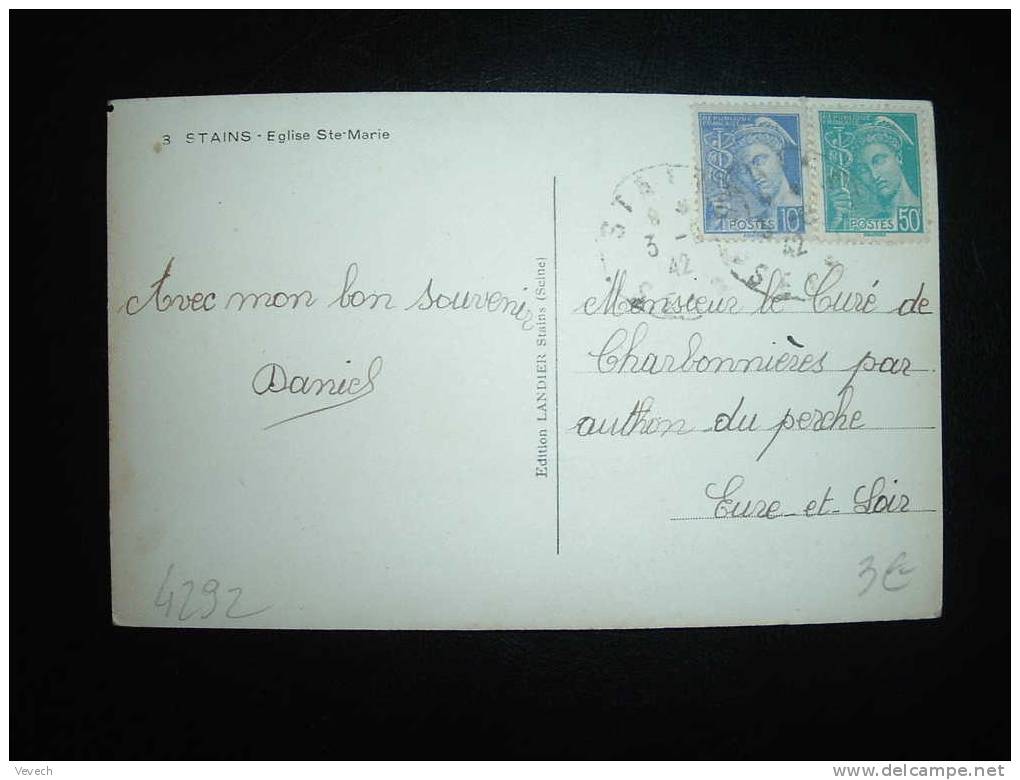 3 STAINS - Eglise Ste-Marie
RÉPUBLIQUE FRANÇAISE
POSTES 10
RÉPUBLIQUE FRANÇAISE
POSTES 50
3 -
42
42
Avec mon bon souvenir
Daniel
Edition LANDIER Stains (Seine)
Monsieur le Curé de
Charbonnières par
authon du perche
Eure-et-Loir
4292
3€
Vevech
delcampe.net